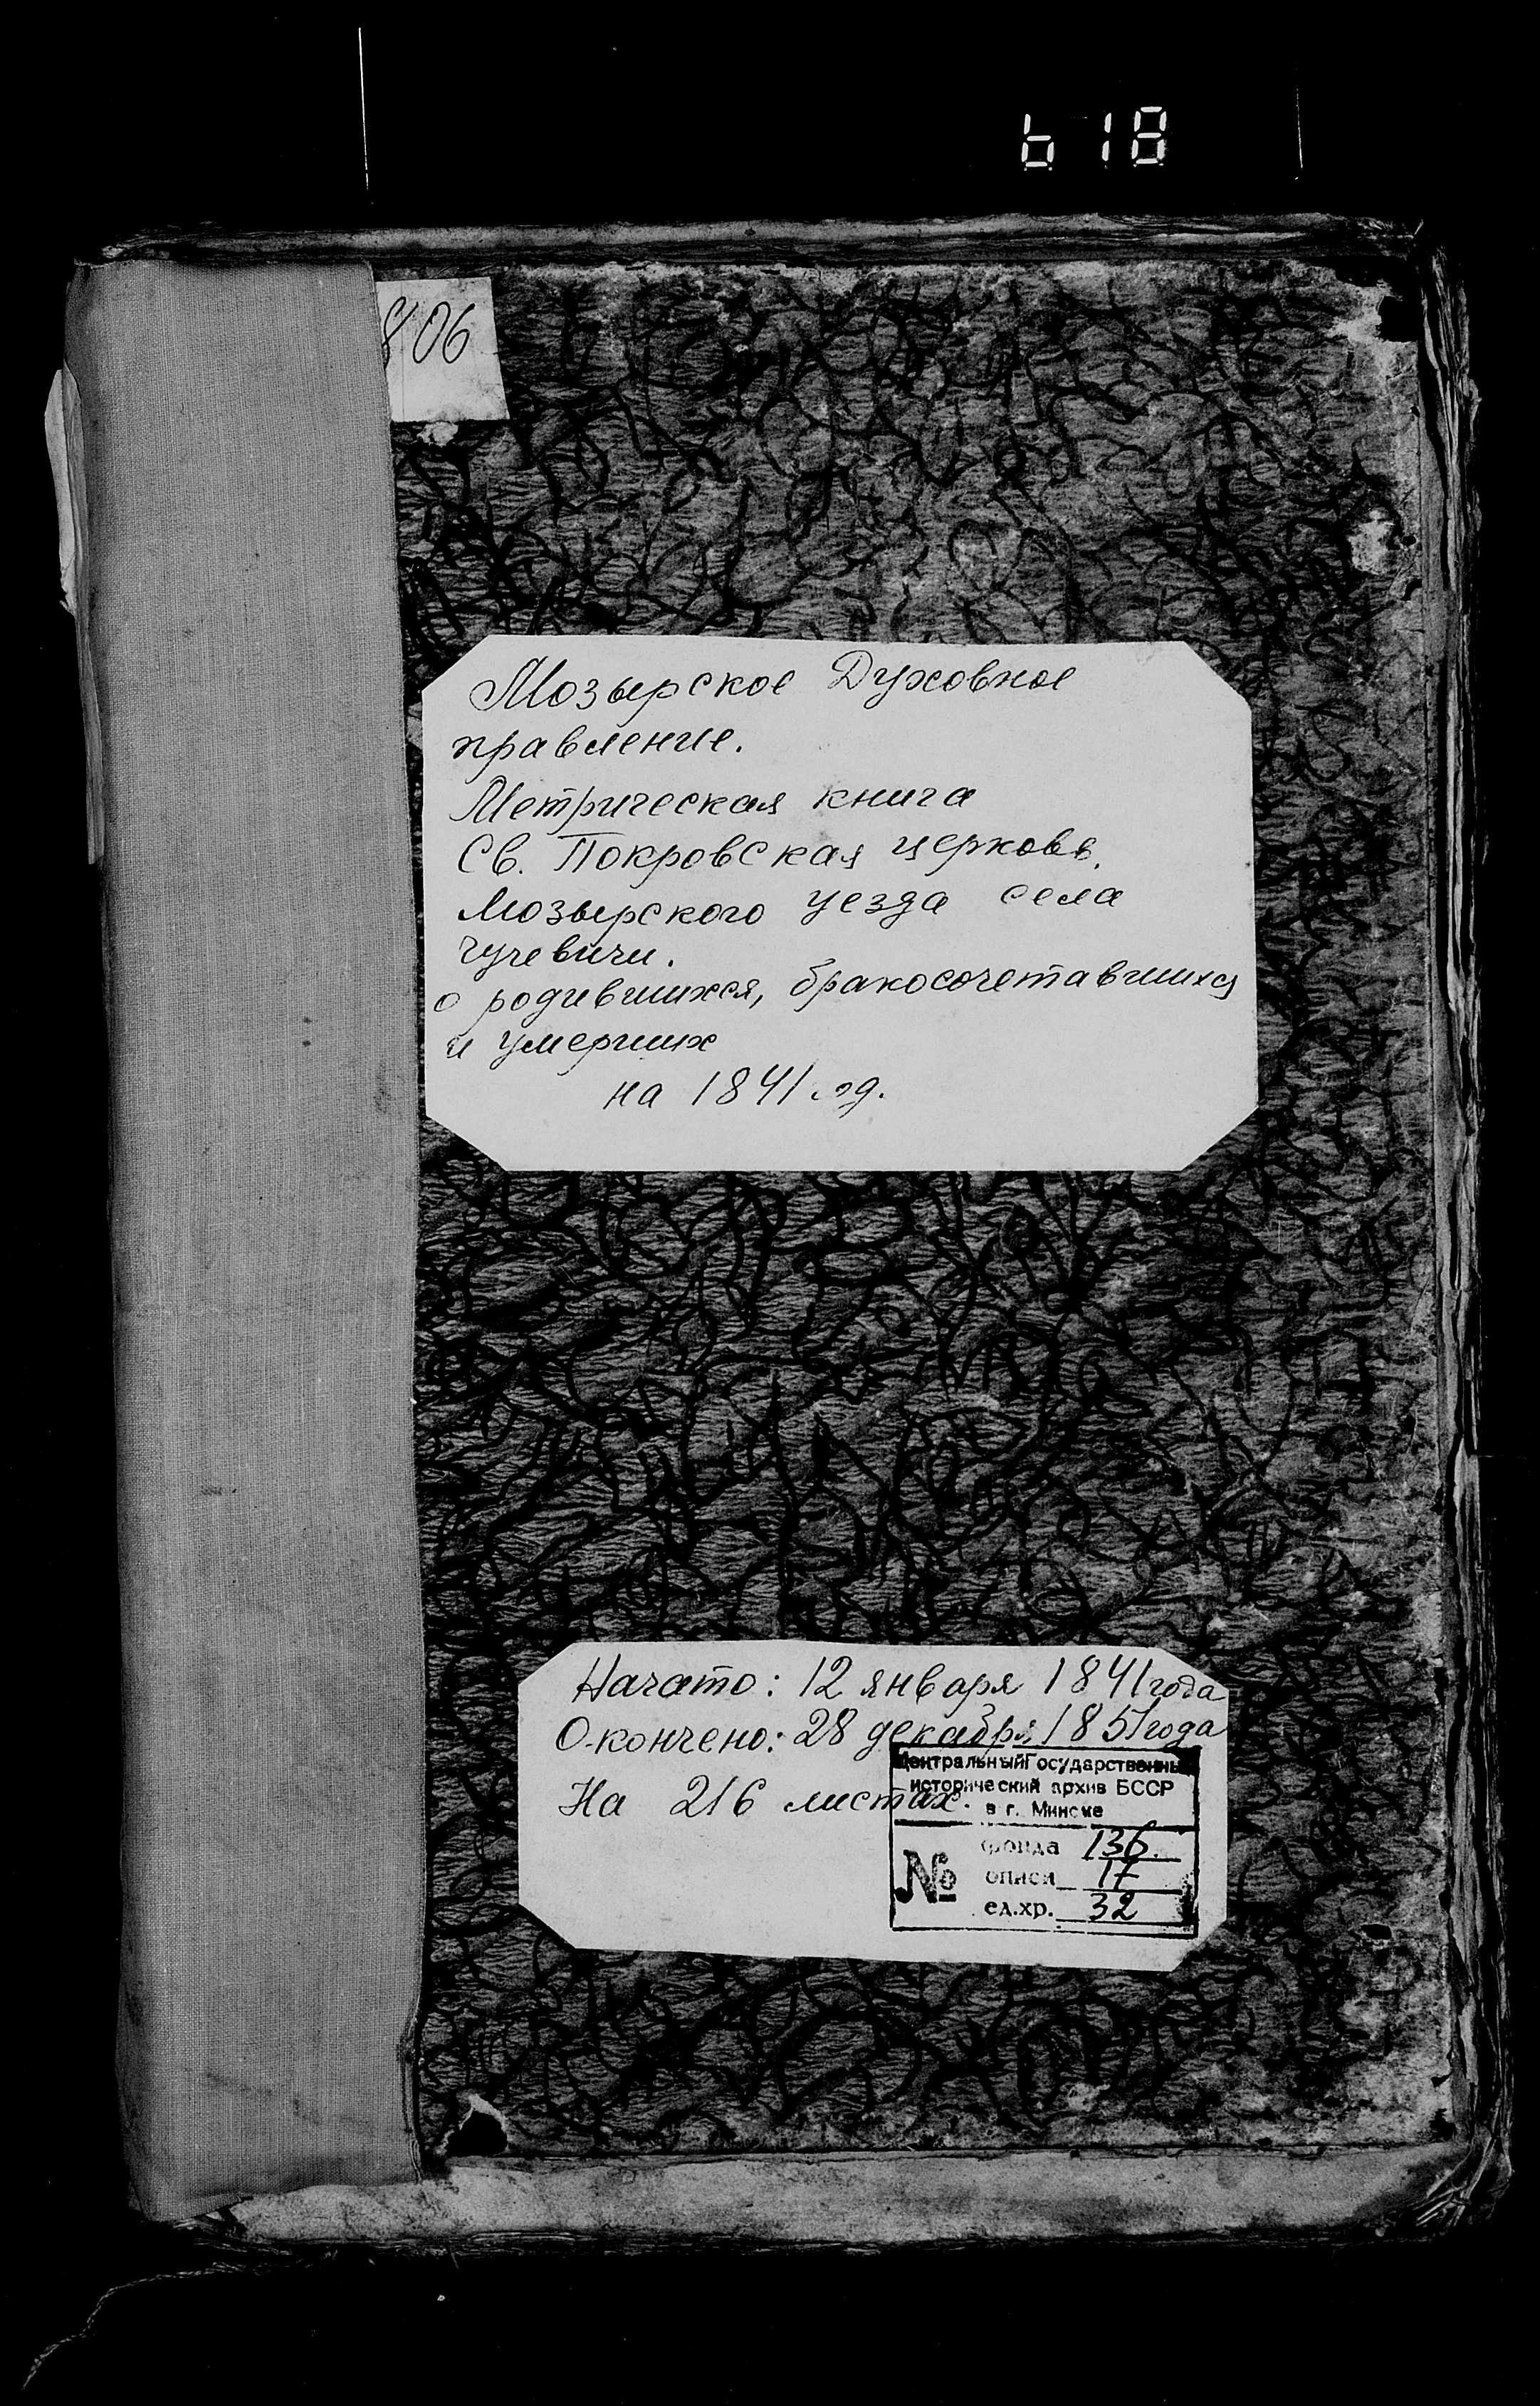 618
806
Мозырское Духовное
правление.
Метрическая книга
Св. Покровская церковь.
Мозырского уезда села
Чучевичи.
о родившихся, бракосочетавшихся
и умерших
на 1841 год.
Начато: 12 января 1841 года
Окончено: 28 декабря 1851 года
На 216 листах.
Центральный Государственный
исторический архив БССР
в г. Минске
№
фонда 136.
описи 17
ед.хр. 32